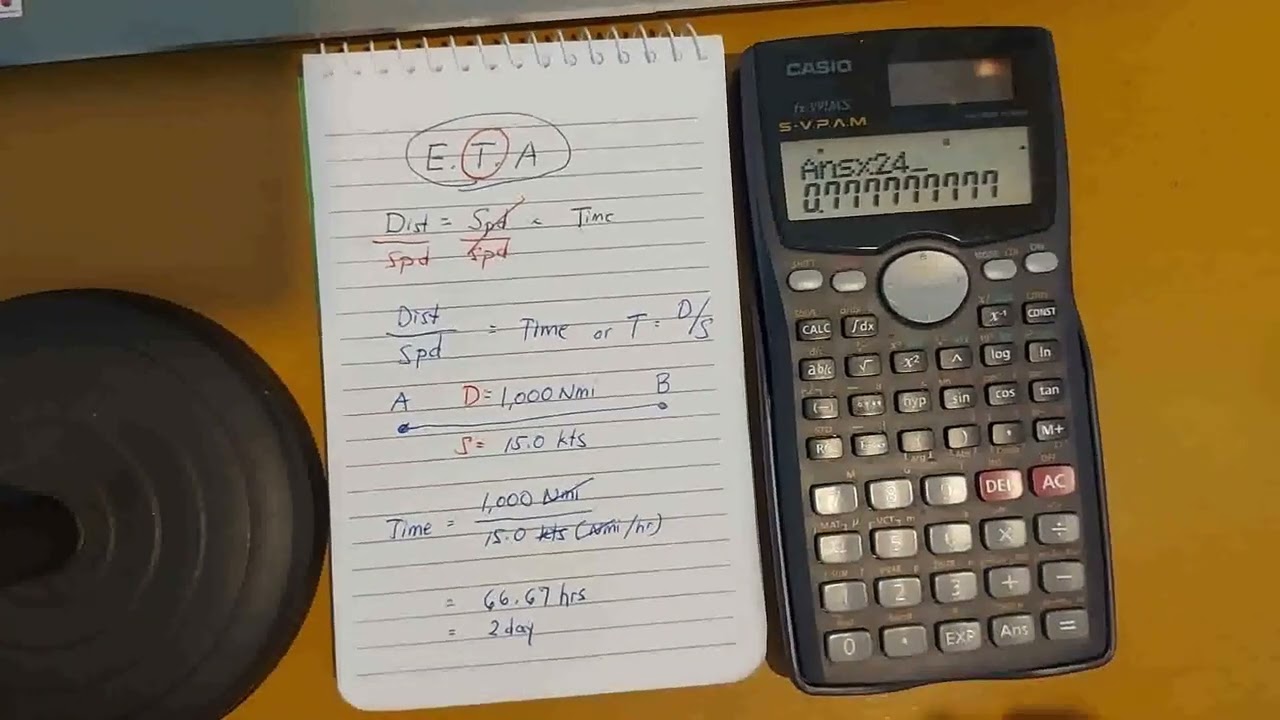 E.T.A
Dist = Spd × Time
Spd Spd
Dist = Time or T = D/S
Spd
A D = 1,000 Nmi B
S = 15.0 kts
Time = 1,000 Nmi
15.0 kts (Nmi/hr)
= 66.67 hrs
= 2 day
CASIO
fx-991MS
S-V.P.A.M.
Ans×24
0.777777777
SHIFT MODE CLR ON
CALC ∫dx x⁻¹ CONST
ab/c √ x² ^ log ln
(−) °’” hyp sin cos tan
ENG ( ) , M+
7 8 9 DEL AC
5 6 × ÷
1 2 3 + −
0 . EXP Ans =